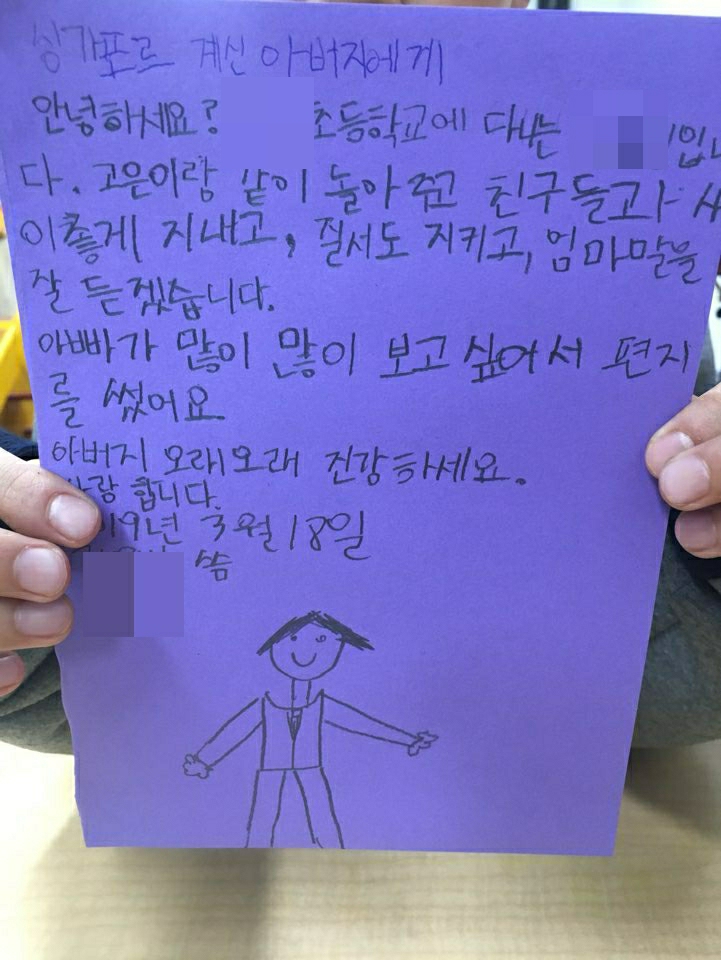 싱가포르 계신 아버지에게
안녕하세요? 초등학교에 다니는 입니
다. 고은이랑 같이 놀아 주고 친구들과 사
이좋게 지내고, 질서도 지키고, 엄마말을
잘 듣겠습니다.
아빠가 많이 많이 보고싶어서 편지
를 썼어요
아버지 오래오래 건강하세요.
사랑 합니다.
19년 3월 18일
씀